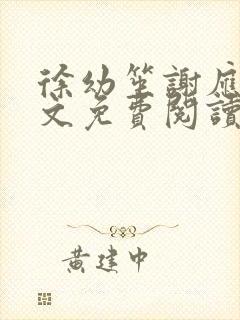 徐幼笙謝應
文免費閱讀
黃建中